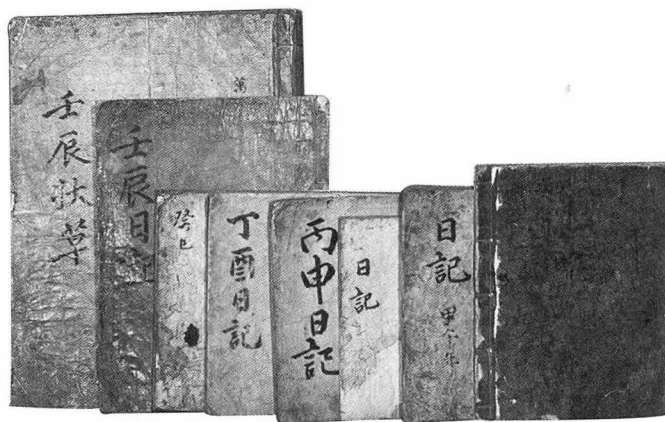 壬辰狀草
萬
壬辰日記
癸巳
丁酉日記
丙申日記
日記
日記
甲午年